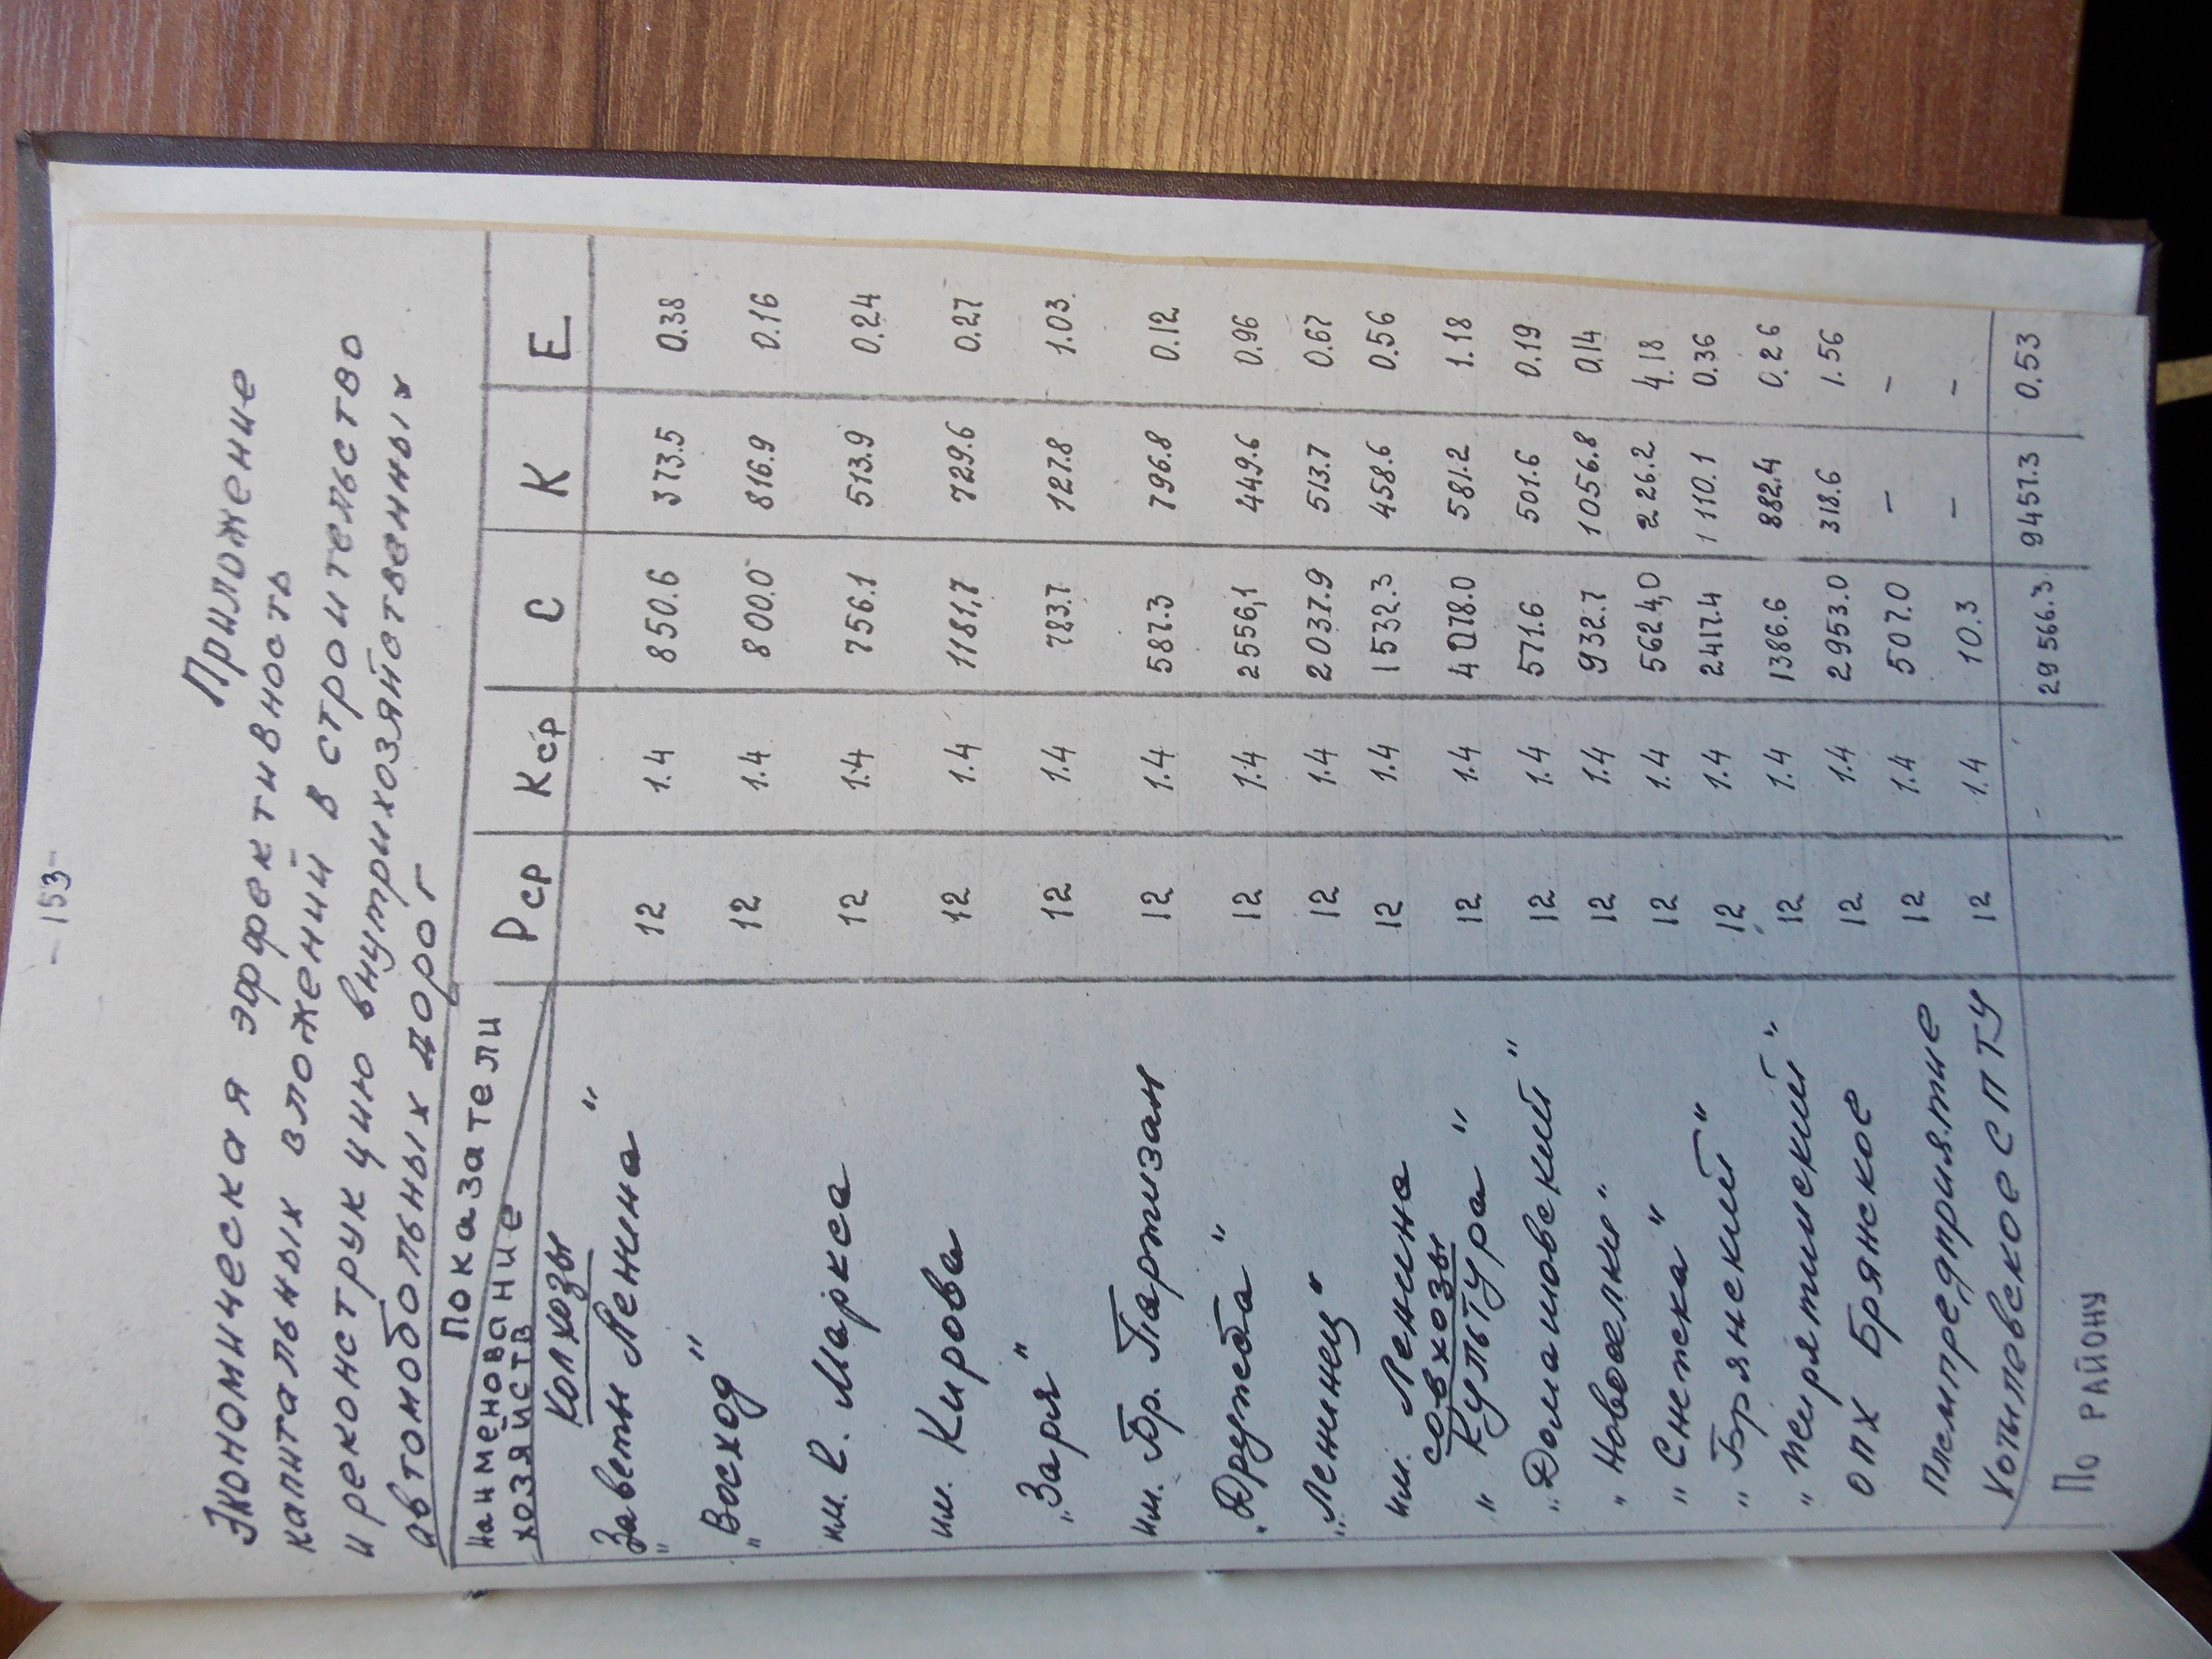 - 153 -
Приложение
Экономическая эффективность
капитальных вложений в строительство
и реконструкцию внутрихозяйственных
автомобольных дорог
Показатели
Наименование хозяйств Рср Кср С К Е
Колхозы
"Заветы Ленина" 12 1.4 850.6 373.5 0.38
"Восход" 12 1.4 800.0 816.9 0.16
им. К. Маркса 12 1.4 756.1 513.9 0.24
им. Кирова 12 1.4 1181,7 729.6 0.27
"Заря" 12 1.4 783.7 127.8 1.03
им. Бр. Партизан 12 1.4 587.3 796.8 0.12
"Дружба" 12 1.4 2556,1 449.6 0.96
"Ленинец" 12 1.4 2037.9 513.7 0.67
им. Ленина 12 1.4 1532.3 458.6 0.56
совхозы
"Культура" 12 1.4 4078.0 581.2 1.18
"Домашовский" 12 1.4 571.6 501.6 0.19
"Новоселки" 12 1.4 932.7 1056.8 0.14
"Снежка" 12 1.4 5624,0 226.2 4.18
"Брянский" 12 1.4 2417.4 1110.1 0.36
"Пирятинский" 12 1.4 1386.6 882.4 0.26
ОПХ Брянское 12 1.4 2953.0 318.6 1.56
Племпредприятие 12 1.4 507.0 - -
Хотылевское СПТУ 12 1.4 10.3 - -
По РАЙОНУ - 29566.3 9457.3 0.53